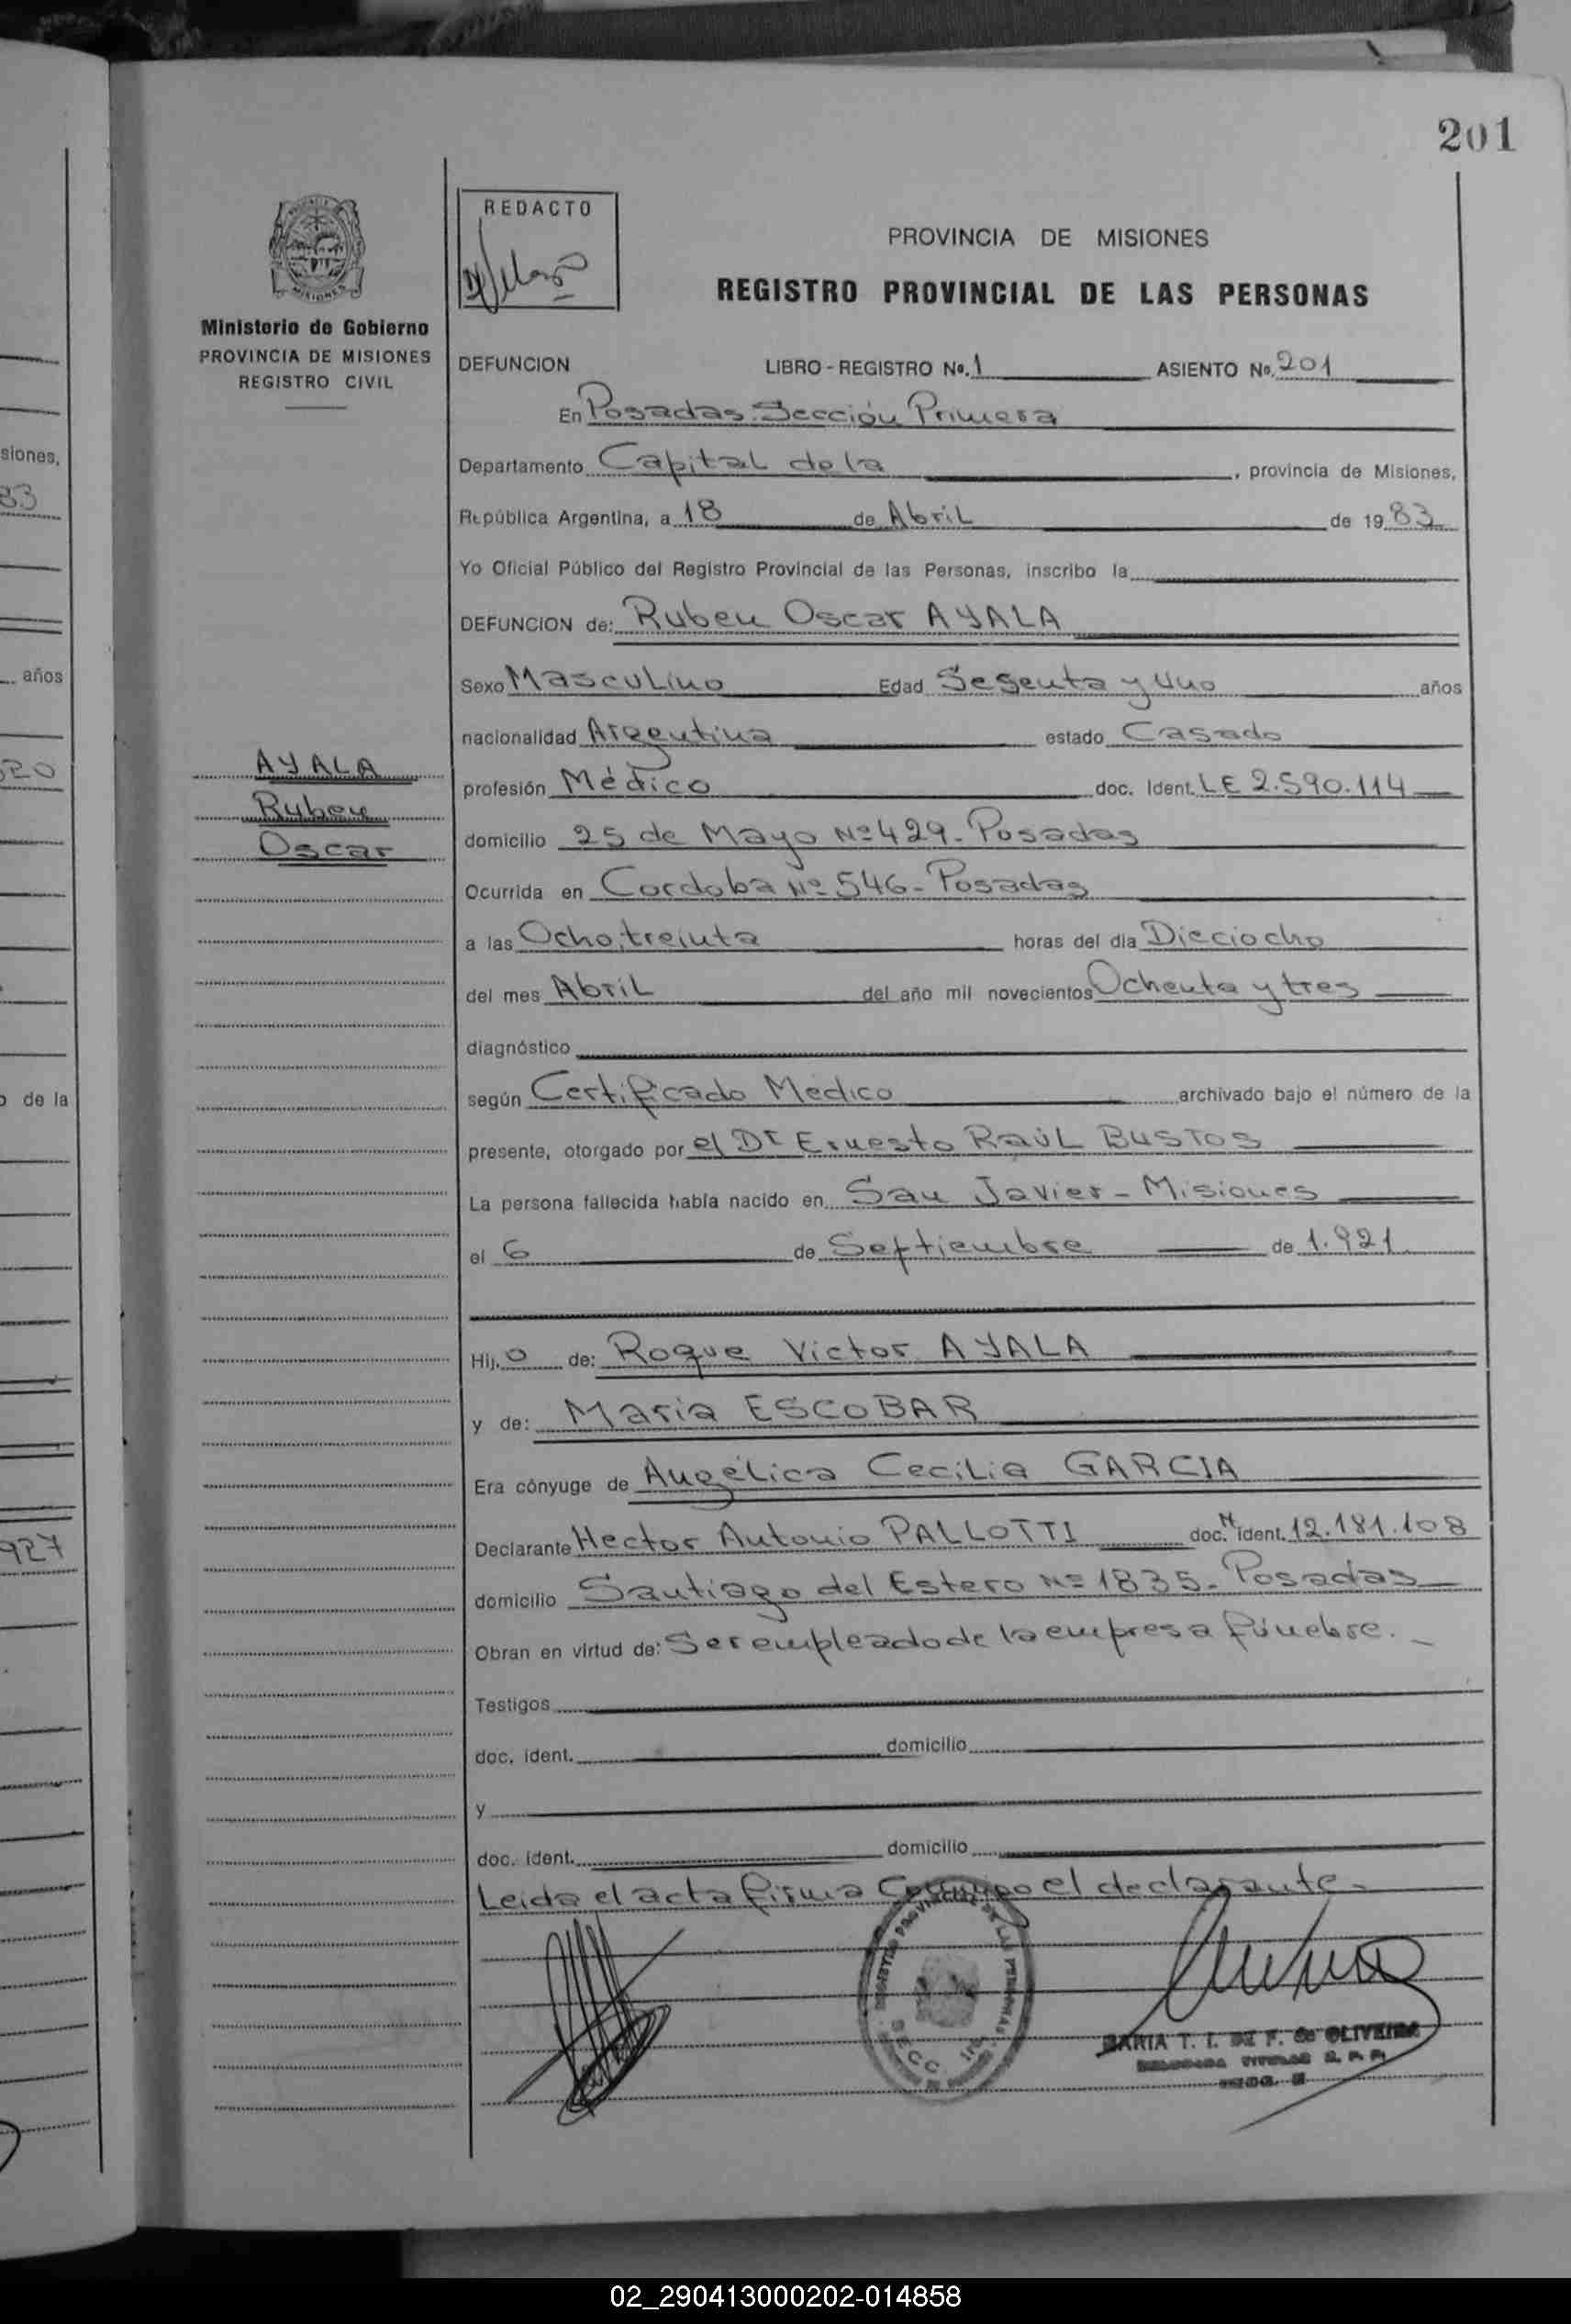 201
REDACTO
PROVINCIA DE MISIONES
REGISTRO PROVINCIAL DE LAS PERSONAS
MISIONES
Ministerio de Gobierno
PROVINCIA DE MISIONES
REGISTRO CIVIL
DEFUNCION LIBRO - REGISTRO No. 1 ASIENTO No. 201
En Posadas Sección Primera
Departamento Capital de la , provincia de Misiones,
República Argentina, a 18 de Abril de 1983
Yo Oficial Público del Registro Provincial de las Personas, inscribo la
DEFUNCION de: Ruben Oscar AYALA
Sexo Masculino Edad Sesenta y uno años
nacionalidad Argentina estado Casado
AYALA
Ruben
Oscar
profesión Médico doc. Ident. LE 2.590.114
domicilio 25 de Mayo Nº 429 - Posadas
Ocurrida en Cordoba Nº 546 - Posadas
a las Ocho, treinta horas del día Dieciocho
del mes Abril del año mil novecientos Ochenta y tres
diagnóstico
según Certificado Medico archivado bajo el número de la
presente, otorgado por el Dr Ernesto Raúl BUSTOS
La persona fallecida había nacido en San Javier - Misiones
el 6 de Septiembre de 1.921
Hijo de: Roque Victor AYALA
y de: Maria ESCOBAR
Era cónyuge de Angélica Cecilia GARCIA
Declarante Hector Antonio PALLOTTI doc. N ident. 12.181.108
domicilio Santiago del Estero Nº 1835 - Posadas
Obran en virtud de: Ser empleado de la empresa fúnebre. -
Testigos
doc. ident. domicilio
y
doc. ident. domicilio
Leida el acta firma Conmigo el declarante -
REGISTRO PROVINCIAL DE LAS PERSONAS
SECC.
MARIA T. I. DE F. de OLIVEIRA
siones,
83
años
520
o de la
927
02_290413000202-014858